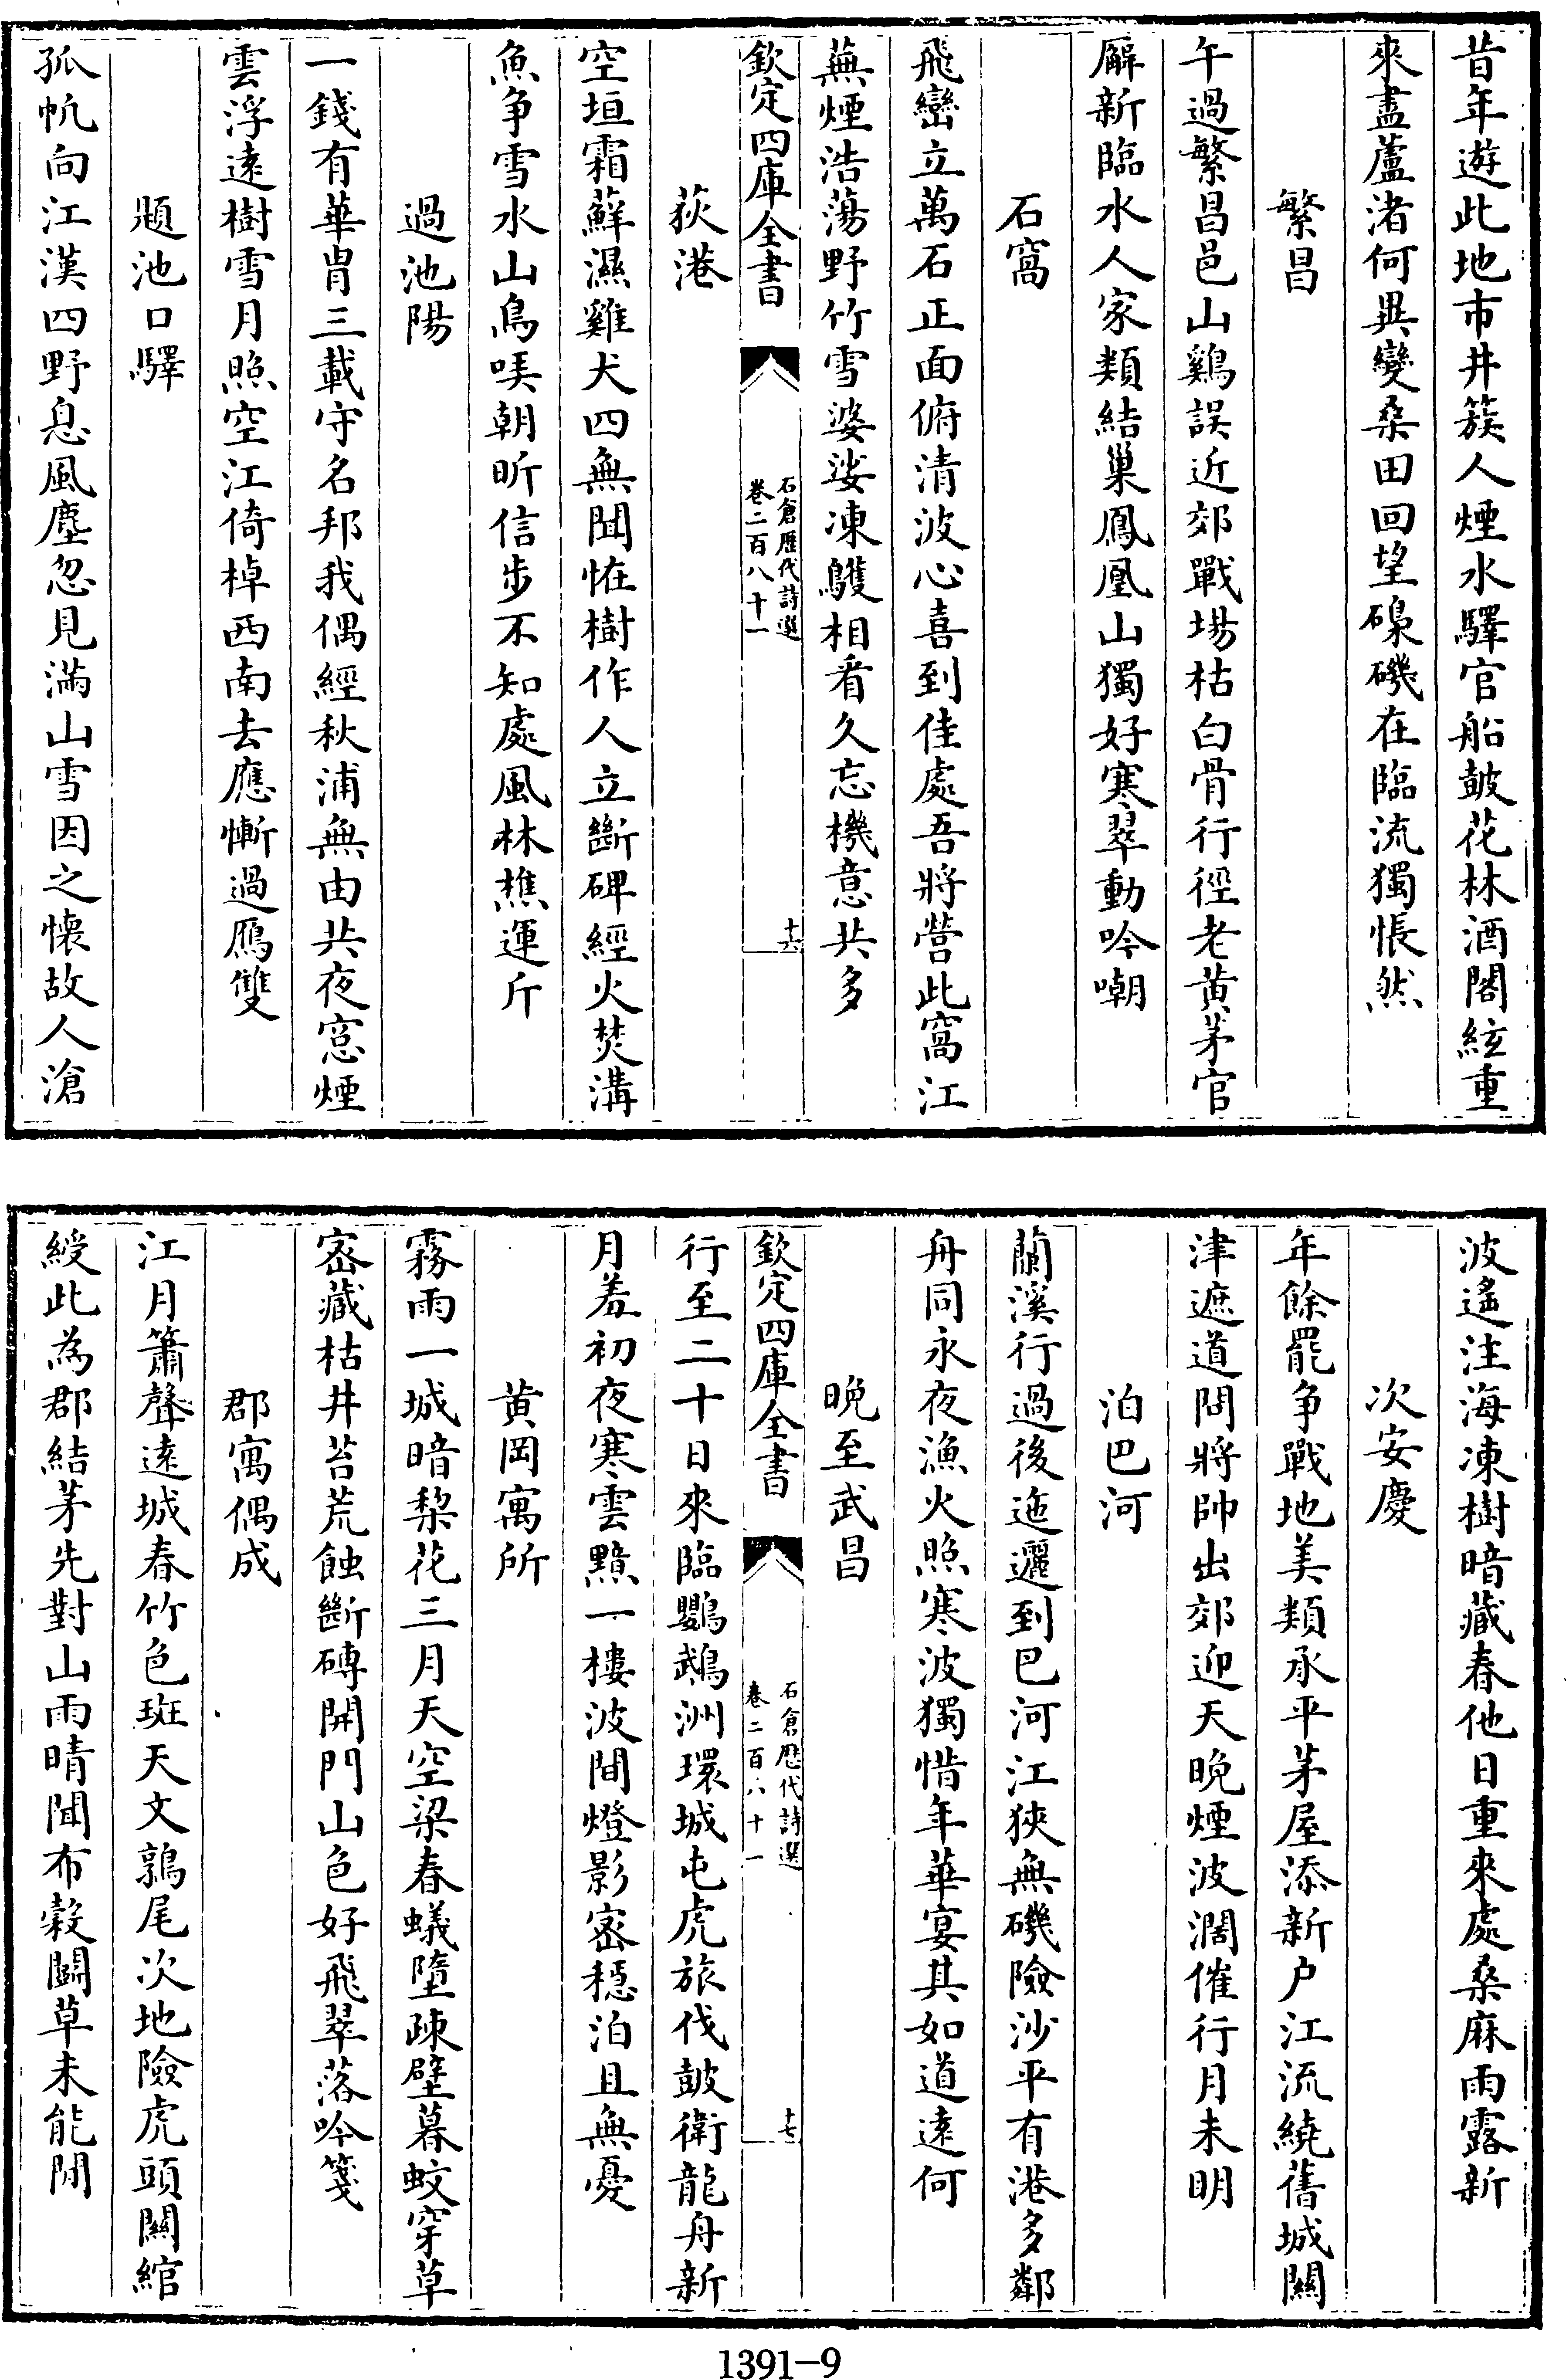 昔年遊此地市井簇人煙水驛官船鼓花林酒閣絃重
來盡蘆渚何異變桑田回望磯在臨流獨悵然
繁昌
午過繁昌邑山鷄誤近郊戰場枯白骨行徑老黄茅官
廨新臨水人家類結巢鳳凰山獨好寒翠動吟嘲
石窩
飛巒立萬石正面俯清波心喜到佳處吾將營此窩江
蕪煙浩蕩野竹雪婆娑凍鸌相看久忘機意共多
欽定四庫全書
石倉歷代詩選
卷二百八十一
十六
荻港
空垣霜蘚濕雞犬四無聞恠樹作人立斷碑經火焚溝
魚争雪水山鳥唉朝昕信步不知處風林樵運斤
過池陽
一錢有華胄三載守名邦我偶經秋浦無由共夜窓煙
雲浮遠樹雪月照空江倚棹西南去應慚過鴈雙
題池口驛
孤帆向江漢四野息風塵忽見滿山雪因之懐故人滄
波遙注海凍樹暗藏春他日重來處桑麻雨露新
次安慶
年餘罷争戰地美類承平茅屋添新户江流繞舊城關
津遮道問將帥出郊迎天晚煙波濶催行月未明
泊巴河
蘭溪行過後迤邐到巴河江狹無磯險沙平有港多鄰
舟同永夜漁火照寒波獨惜年華宴其如道遠何
晚至武昌
欽定四庫全書
石倉歷代詩選
卷二百八十一
十七
行至二十日來臨鸚鵡洲環城屯虎旅伐鼓衛龍舟新
月羞初夜寒雲黯一樓波間燈影宻穏泊且無憂
黄岡寓所
霧雨一城暗梨花三月天空梁春蟻墮疎壁暮蚊穿草
宻藏枯井苔荒蝕斷磚開門山色好飛翠落吟箋
郡寓偶成
江月簫聲遠城春竹色斑天文鶉尾次地險虎頭關綰
綬此為郡結茅先對山雨晴聞布穀鬭草未能閒
1391-9